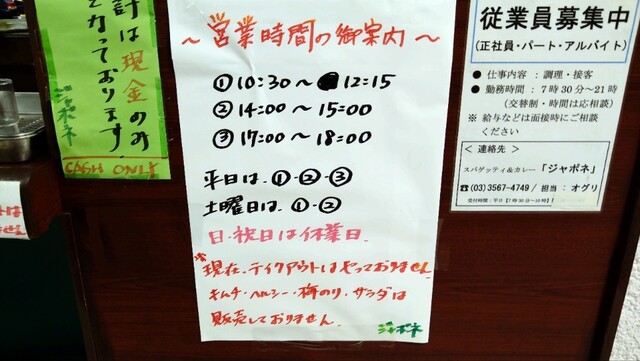 計は現金のみ
となっております
ジャポネ
CASH ONLY
～営業時間の御案内～
①10:30～12:15
②14:00～15:00
③17:00～18:00
平日は、①・②・③
土曜日は、①・②
日・祝日は休業日.
※現在、テイクアウトはやっておりません
キムチ・ヘルシー・梅のり・サラダは
販売しておりません。
ジャポネ
従業員募集中
(正社員・パート・アルバイト)
● 仕事内容 : 調理・接客
● 勤務時間 : 7時30分～21時
(交替制・時間は応相談)
※ 給与などは面接時にご相談
ください
＜ 連絡先 ＞
スパゲッティ&カレー「ジャポネ」
☎(03)3567-4749 / 担当 : オグリ